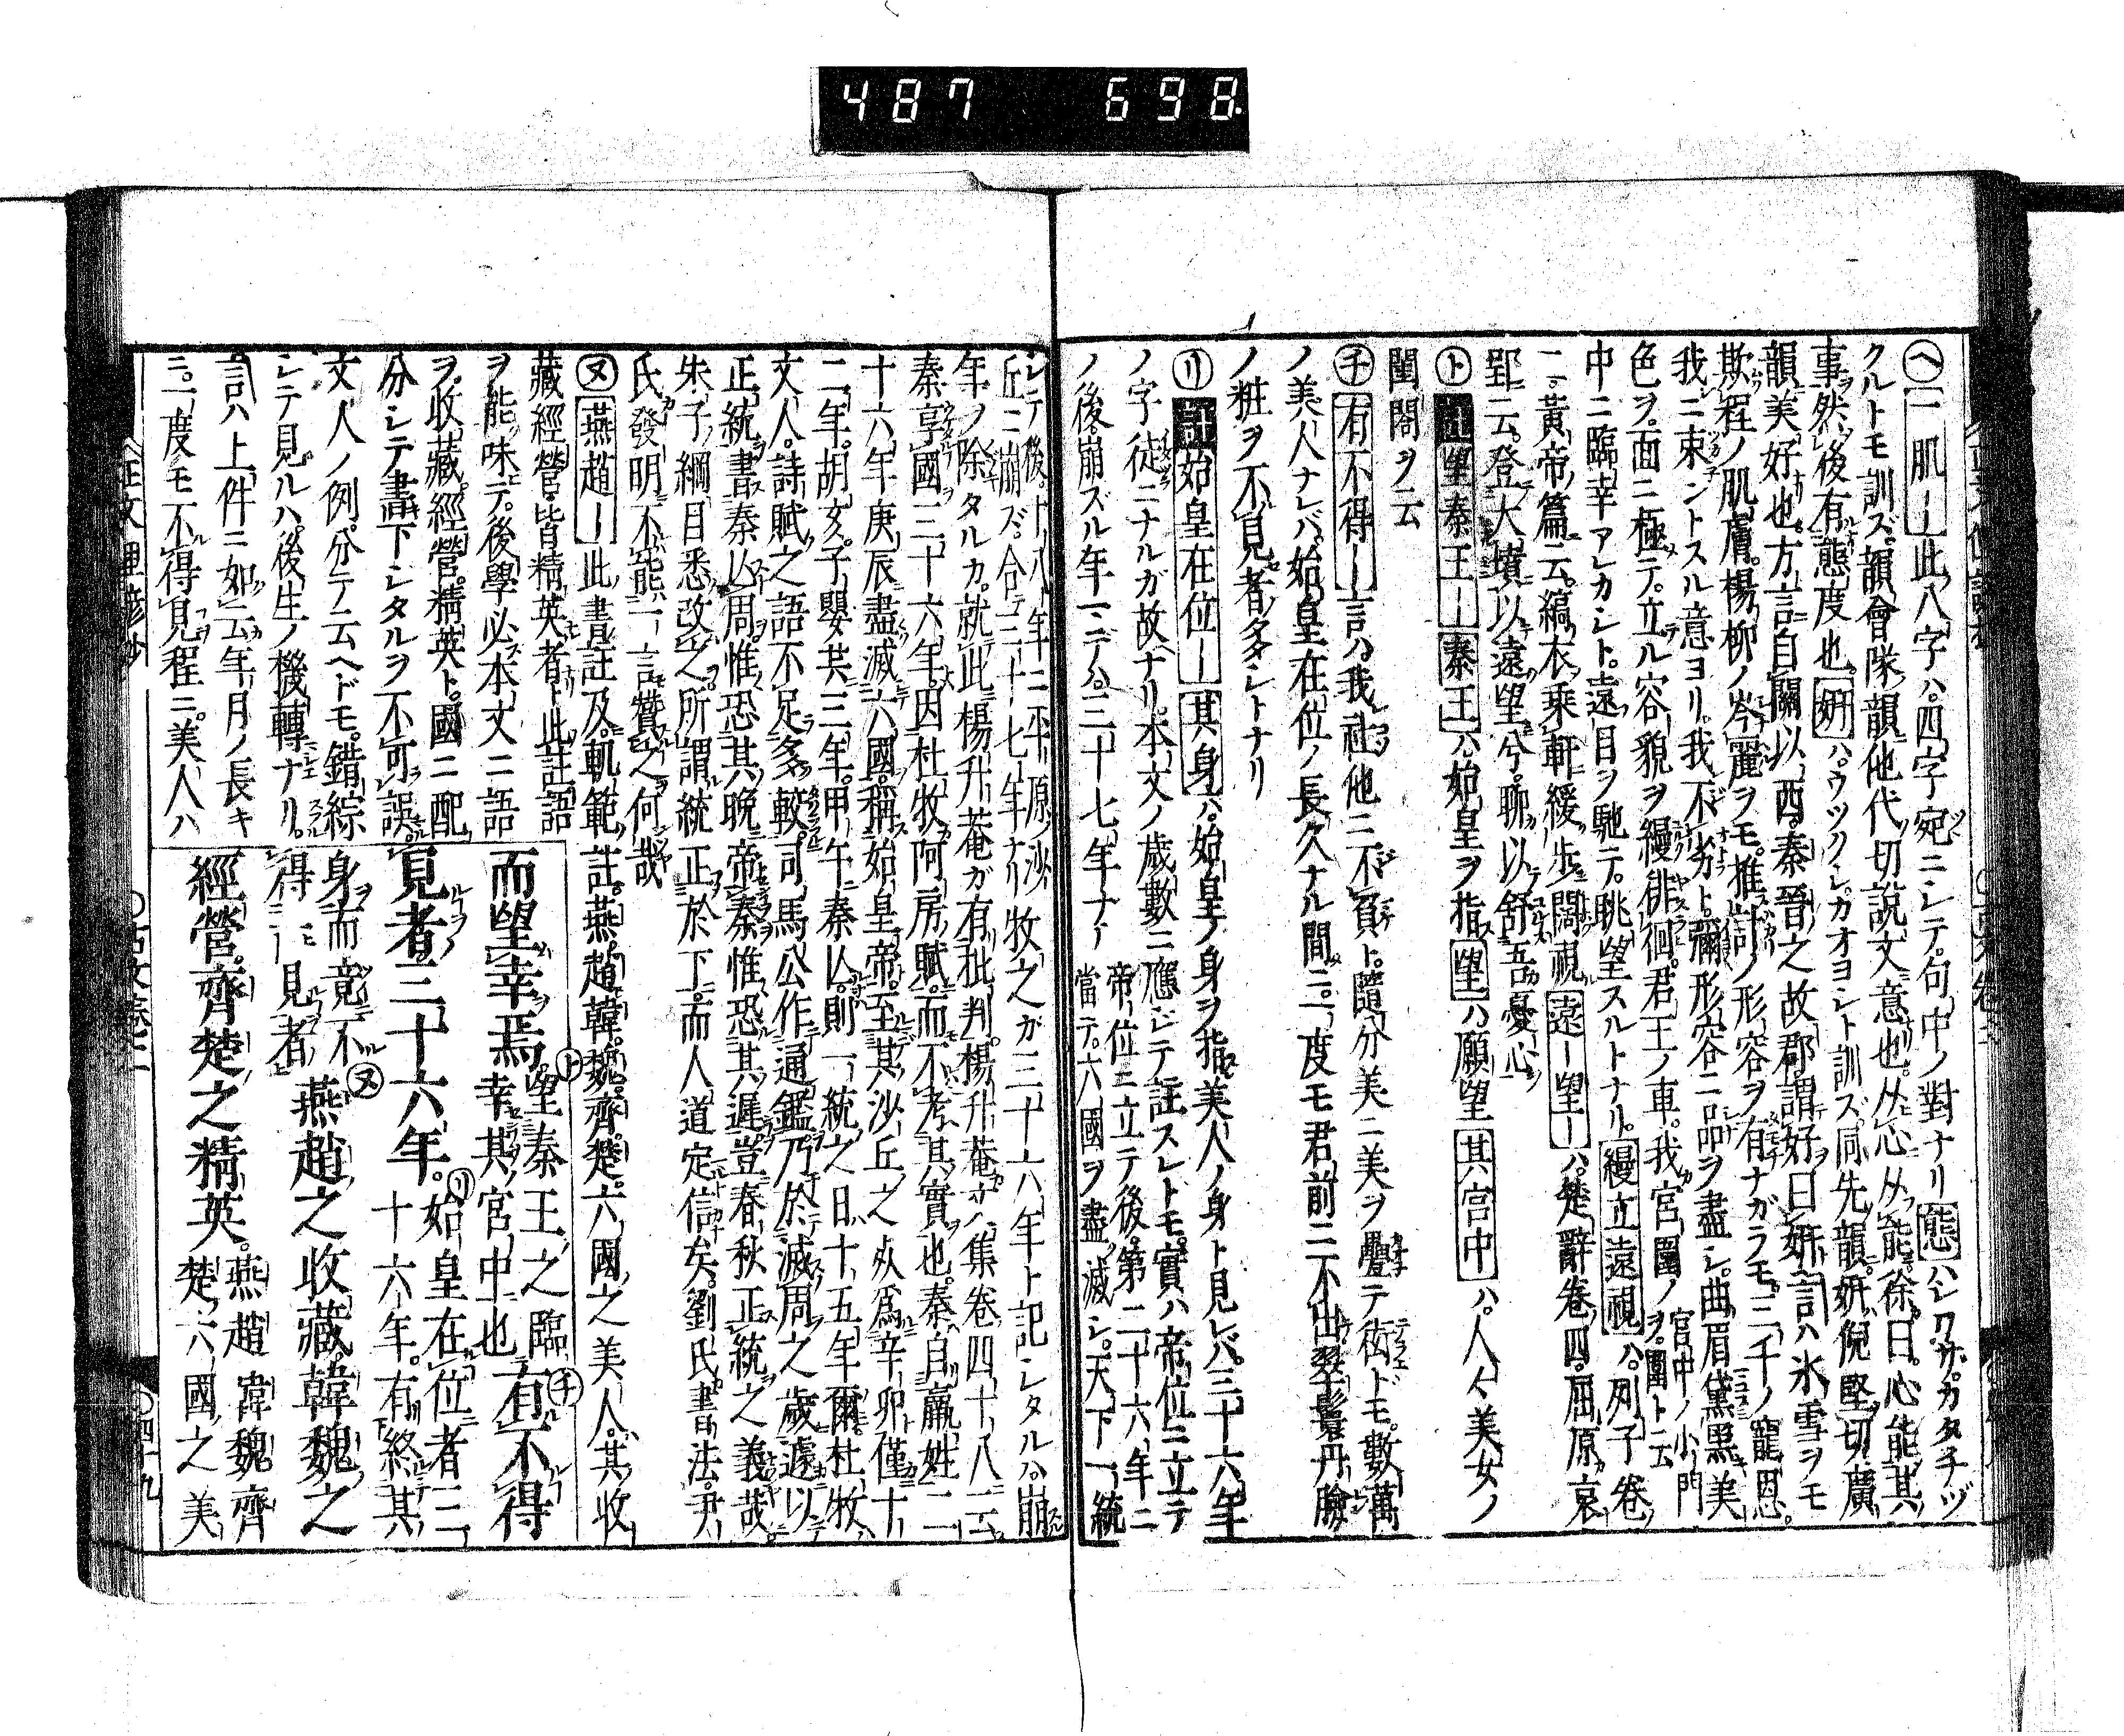 487 698
㋬一肌ー此八字ハ四字宛ニシテ句中ノ對ナリ態ハシワザカタチヅ
クルトモ訓ズ韻會隊韻他代切説文意也从心从能徐曰心能其
事然後有態度也妍ハウツクシカオヨシト訓ズ同先韻妍倪堅切廣
韻美好也方言自關以西秦晉之故都謂好曰妍言ハ氷雪ヲモ
欺程ノ肌膚楊柳ノ 麗ヲモ推 ノ形容ヲ有ナガラモ三千ノ寵恩
我ニ束ントスル意ヨリ我不劣ト彌形容ニ品ヲ盡シ曲眉黛黒美
色ヲ面ニ極テ立ル容貌ヲ縵徘徊君王ノ車我宮闈ノヲ宮中ノ小門ヲ闈ト云
中ニ臨幸アレカシト遠目ヲ馳テ眺望スルトナリ縵立遠視ハ列子卷
二黃帝篇云縞衣乘軒緩步闊視遠ー望ーハ楚辭卷四屈原哀
郢ニ云登大墳以遠望兮聊以舒吾憂心
㋣註望秦王ー秦王ハ始皇ヲ指望ハ願望其宮中ハ人々美女ノ
閨閤ヲ云
㋠有不得ー言ハ我社他ニ不負ト隨分美ニ美ヲ疊テ ドモ數萬
ノ美人ナレバ始皇在位ノ長久ナル間ニ一度モ君前ニ不出翠鬟丹臉
ノ粧ヲ不見者多シトナリ
㋷註始皇在位ー其身ハ始皇ノ身ヲ指美人ノ身ト見レバ三十六年
ノ字徒ニナルガ故ナリ本文ノ歳數ニ應ジテ註スレトモ實ハ帝位ニ立テ
ノ後崩ズル年マデハ三十七年ナリ帝位ニ立テ後第二十六年ニ當テ六國ヲ盡滅シ天下一統
シテ後十八年ニ平原ノ沙
丘ニ崩ズ合三十七年ナリ牧之ガ三十六年ト記シタルハ崩
年ノ除タルカ就此楊升菴ガ有批判楊升菴カ集卷四十八云
秦享國三十六年因杜牧阿房賦而不考其實也秦自嬴姓二
十六年庚辰盡滅六國稱始皇帝至其沙丘之 爲辛卯僅十
二年胡亥子嬰其三年甲午秦亾則一統之日十五年爾杜牧
文人詩賦之語不足多較司馬公作通鑑乃於滅周之歲遽以
正統書秦亾周惟恐其晚帝秦惟恐其遲豈春秋正統之義哉
朱子綱目悉改之所謂統正於下而人道定信矣劉氏書法尹
氏發明不能一言贊之何哉
㋦燕趙ー此書註及軌範註燕趙韓魏齊楚六國之美人其收
藏經營皆精英者ト此註語
ヲ能味テ後學必本文ニ語
ヲ收藏經營精英ト國ニ配
分シテ書下シタルヲ不可誤
文人ノ例分テ云ヘドモ錯綜
シテ見ルハ後生ノ機轉ナリ
言ハ上件ニ如云年月ノ長キ
ニ一度モ不得見程ニ美人ハ
而望幸焉望秦王之臨幸其宮中也有不得
見者三十六年始皇在位者三十六年有終其
身而竟不得一見者燕趙之收藏韓魏之
經營齊楚之精英燕趙韓魏齊楚六國之美